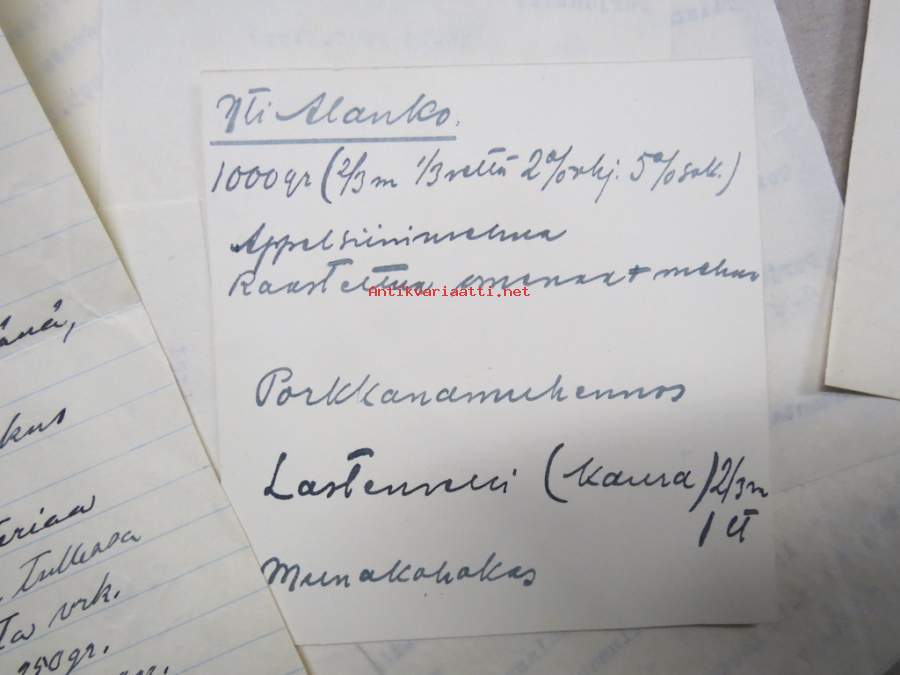 Yti Alanko.
1000gr (2/3 m 1/3 vettä 2%vkj. 5% sok.)
Appelsiinimehua
Raastettua omenaa + mehua
Antikvariaatti.net
Porkkanamuhennos
Lastenvelli (kaura) 2/3 m
1 tl
Munakohokas
kus
Tulkaa
vrk.
250gr.